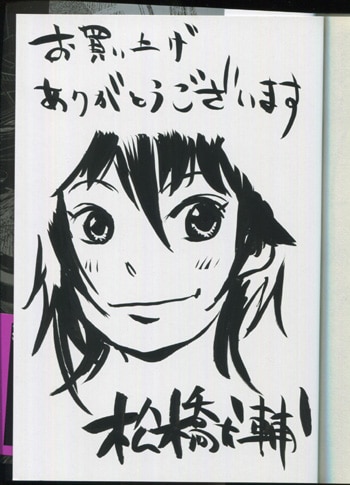 お買い上げ
ありがとうございます
松橋犬輔